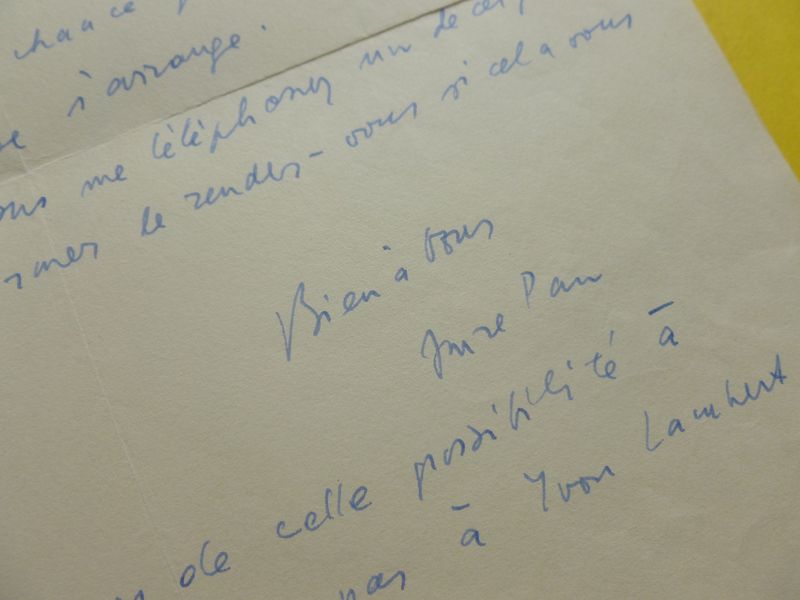 chance
s'arrange.
me téléphoner un de ces
le rendez-vous si cela vous
Bien à vous
Imre Pan
de celle possibilité à
pas à Yvon Lambert